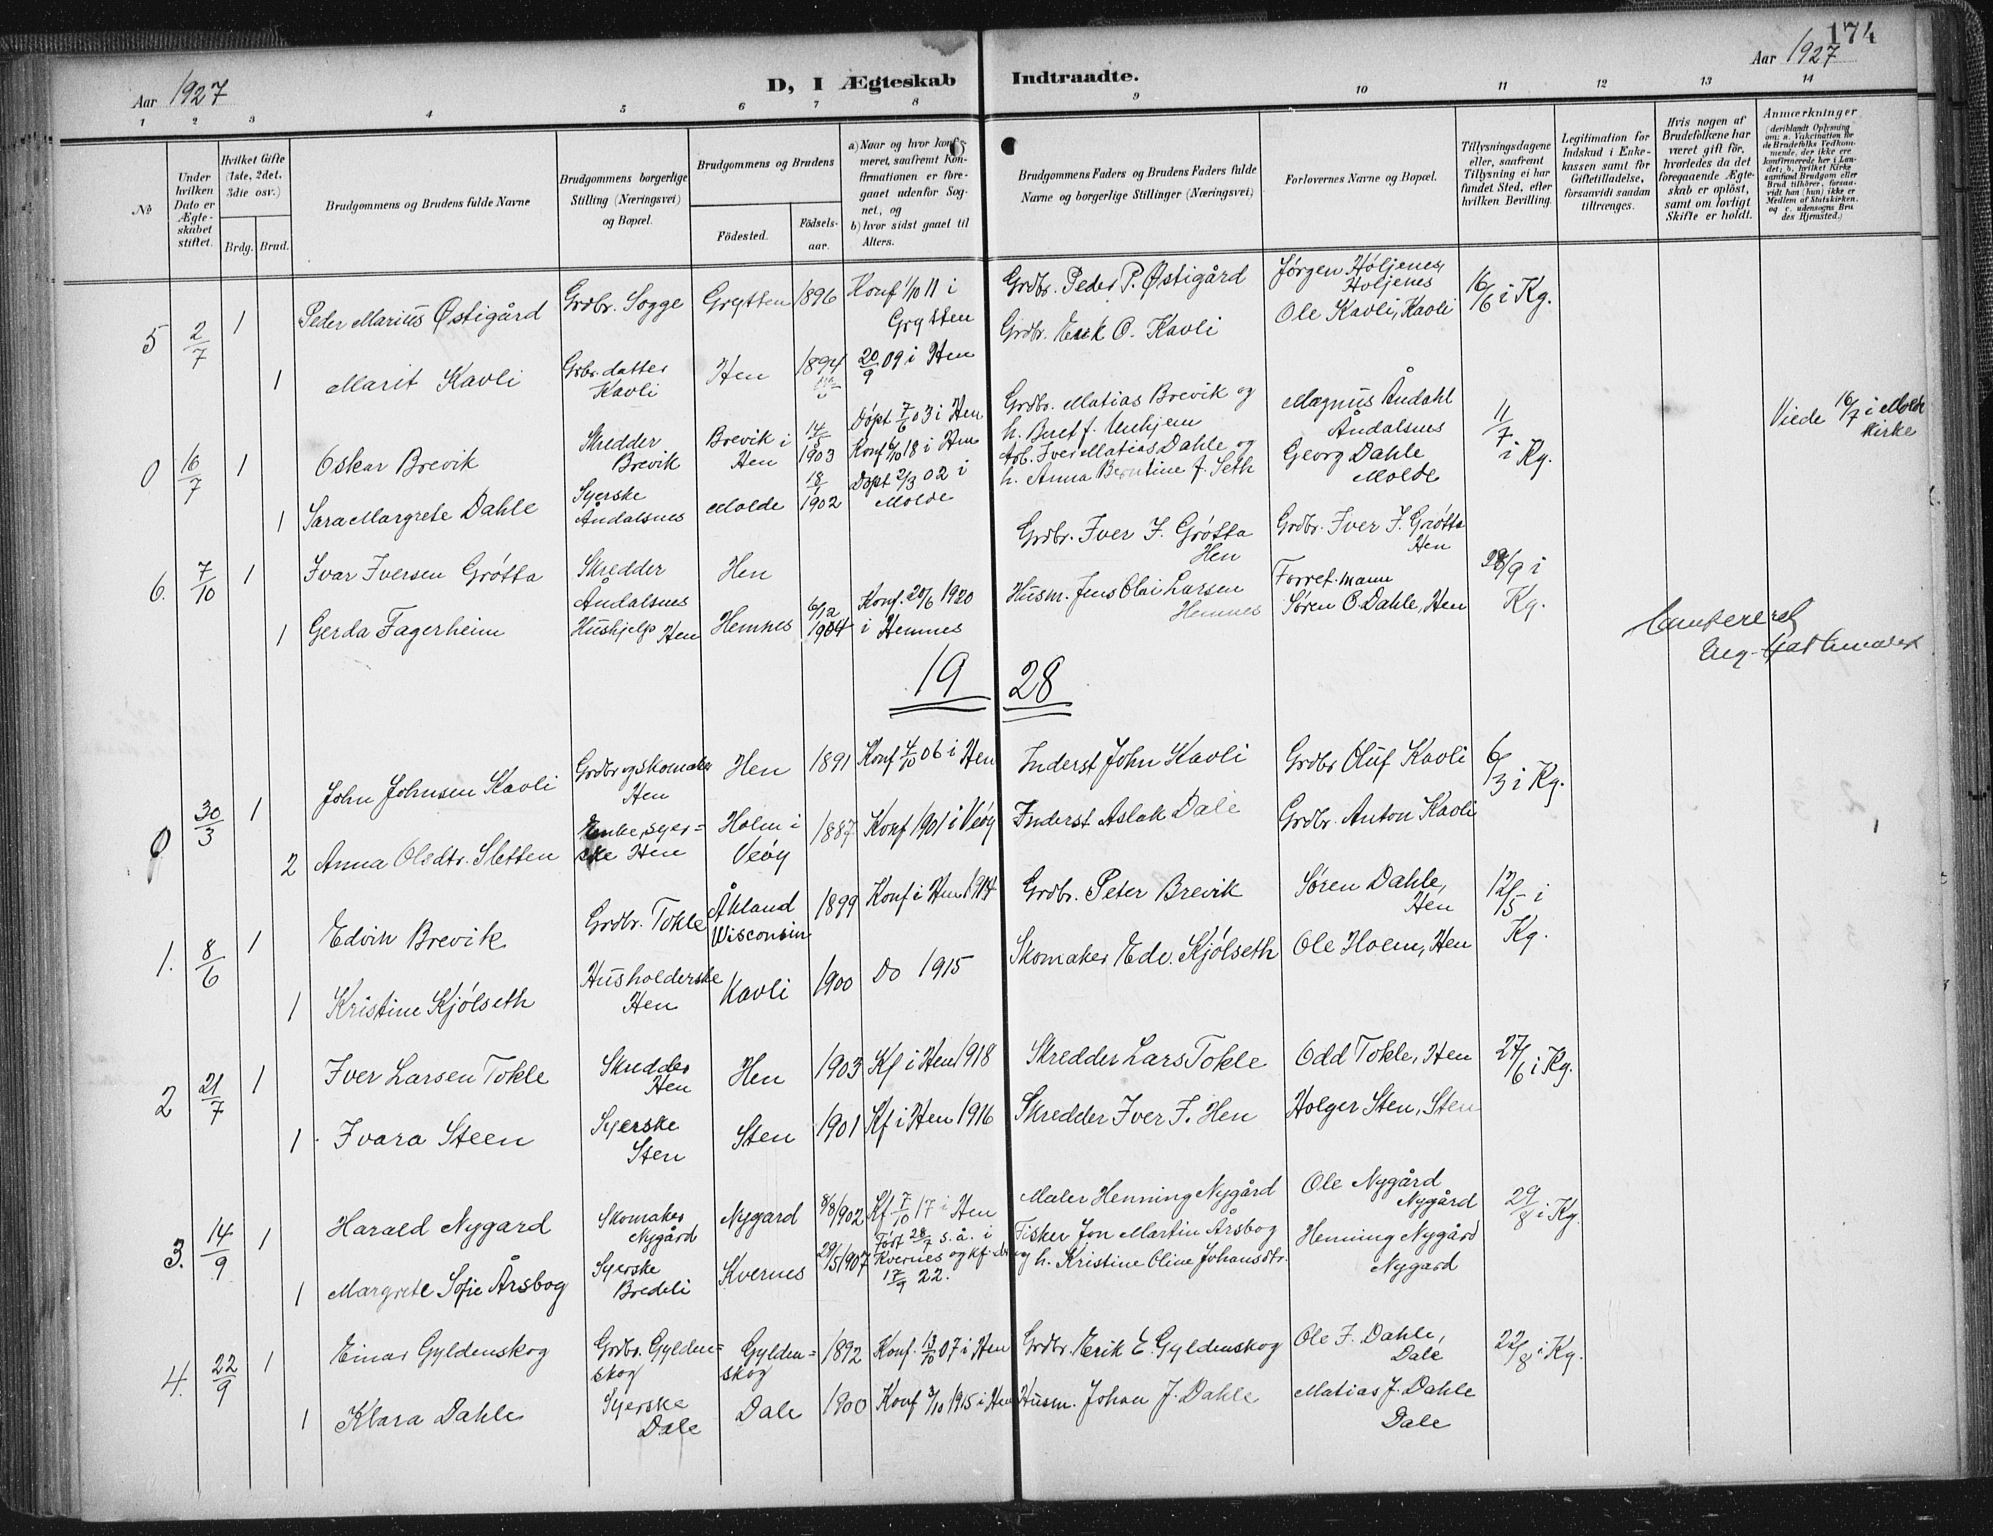 174
Aar 1927
D, I Ægteskab Indtraadte.
Aar 1927
1 2 3 4 5 6 7 8 9 10 11 12 13 14
No
Under hvilken Dato er Ægteskabet stiftet.
Hvilket Gifte (1ste, 2det, 3die osv.)
Brdg. Brud.
Brudgommens og Brudens fulde Navne
Brudgommens borgerlige Stilling (Næringsvei) og Bopæl.
Brudgommens og Brudens
Födested. Födselsaar.
a) Naar og hvor konfirmeret, saafremt Konfirmationen er foregaaet udenfor Sognet, og
b) hvor sidst gaaet til Alters.
Brudgommens Faders og Brudens Faders fulde Navne og borgerlige Stillinger (Næringsvei)
Forlovernes Navne og Bopæl.
Tillysningsdagene eller, saafremt Tillysning ei har fundet Sted, efter hvilken Bevilling.
Legitimation for Indskud i Enkekassen samt for Giftetilladelse, forsaavidt saadan tiltrænges.
Hvis nogen af Brudefolkene har været gift før, hvorledes da det foregaaende Ægteskab er opløst, samt om lovligt Skifte er holdt.
Anmærkninger
(deriblandt Oplysning om: a. Vakcination for de Brudefolks Vedkommende, der ikke ere konfirmerede her i Landet; b. hvilket Kirkesamfund Brudgom eller Brud tilhører, forsaavidt han (hun) ikke er Medlem af Statskirken, og c. udensogns Brudes Hjemsted.)
5 2/7 1 Peder Marius Østigård Grdbr. Sogge Grytten 1896 Konf 1/10 11 i Grytten Grdbr. Peder P. Østigård Jørgen Høljenes, Holjenes 16/6 i Kg.
1 Marit Kavli Grbr.datter Kavli Hen 1894 20/9 09 i Hen Grdbr. Erik O. Kavli Ole Kavli, Kavli
0 16/7 1 Oskar Brevik Skredder Brevik Brevik i Hen 14/5 1903 Döpt 7/6 03 i Hen Konf 6/10 18 i Hen Grdbr. Matias Brevik og h. Beret f. Unhjem Magnus Åndahl Åndalsnes 11/7 i Kg. Viede 16/7 i Molde Kirke
1 Sara Margrete Dahle Syerske Åndalsnes Molde 18/1 1902 Döpt 2/3 02 i Molde Arb. Iver Matias Dahle og h. Anna Berntine f. Seth Georg Dahle Molde
6. 7/10 1 Ivar Iversen Grötta Skredder Åndalsnes Hen Grdbr. Iver I. Grötta Hen Grdbr. Iver I. Grötta Hen 28/9 i Kg.
1 Gerda Fagerheim Hushjelp Hen Hemnes 6/12 1904 Konf. 20/6 1920 i Hemnes Husm. Jens Olai Larsen Hemnes Forret.mann Søren O. Dahle, Hen
19 28
30/3 1 John Johnsen Kavli Grdbr og skomaker Hen Hen 1891 Konf 4/10 06 i Hen Inderst John Kavli Grdbr Oluf Kavli 6/3 i Kg.
2 Anna Olsdtr. Sletten Enke, syerske Hen Holm i Veöy 1887 Konf 1901 i Veöy Inderst Aslak Dale Grdbr. Anton Kavli
1. 8/6 1 Edvin Brevik Grdbr. Tokle Åkland Wisconsin 1899 Konf i Hen 1914 Grdbr. Peter Brevik Søren Dahle, Hen 12/5 i Kg.
1 Kristine Kjölseth Husholderske Hen Kavli 1900 Do 1915 Skomaker Edv. Kjölseth Ole Holm, Hen
2 21/7 1 Iver Larsen Tokle Skredder Hen Hen 1903 Kf i Hen 1918 Skredder Lars Tokle Odd Tokle, Hen 27/6 i Kg.
1 Ivara Steen Syerske Sten Sten 1901 Kf i Hen 1916 Skredder Iver I. Hen Holger Sten, Sten
3. 14/9 1 Harald Nygard Skomaker Nygård Nygard 8/8 1902 Kf 7/10 17 i Hen Maler Henning Nygård Ole Nygård Nygård 29/8 i Kg.
1 Margrete Sofie Årsbog Syerske Bredeli Kvernes 29/5 1907 28/7 s. å. i Kvernes og kf. 17/9 22. Fisker Jon Martin Årsbog og h. Kristine Oline Johansdtr. Henning Nygård Nygard
4. 22/9 1 Einar Gyldenskog Grdbr. Gyldenskog Gyldenskog 1892 Konf. 13/10 07 i Hen Grdbr. Erik E. Gyldenskog Ole I. Dahle, Dale 22/8 i Kg.
1 Klara Dahle Syerske Dale Dale 1900 Konf 3/10 1915 i Hen Husm. Johan J. Dahle Matias J. Dahle Dale